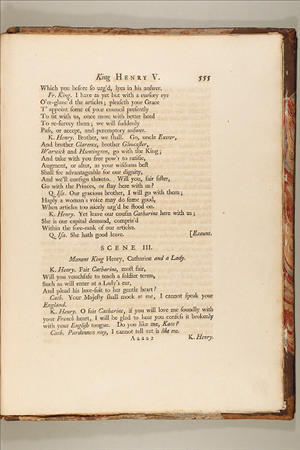 King HENRY V. 555
Which you before so urg'd, lyes in his answer.
Fr. King. I have as yet but with a cursory eye
O'er-glanc'd the articles; pleaseth your Grace
T' appoint some of your council presently
To sit with us, once more with better heed
To re-survey them; we will suddenly
Pass, or accept, and peremptory answer.
K. Henry. Brother, we shall. Go, uncle Exeter,
And brother Clarence, brother Gloucester,
Warwick and Huntington, go with the King;
And take with you free pow'r to ratifie,
Augment, or alter, as your wisdoms best
Shall see advantageable for our dignity,
And we'll consign thereto. Will you, fair sister,
Go with the Princes, or stay here with us?
Q. Isa. Our gracious brother, I will go with them;
Haply a woman's voice may do some good,
When articles too nicely urg'd be stood on.
K. Henry. Yet leave our cousin Catharine here with us;
She is our capital demand, compris'd
Within the fore-rank of our articles.
Q. Isa. She hath good leave. [Exeunt.
SCENE III.
Manent King Henry, Catharine and a Lady.
K. Henry. Fair Catharine, most fair,
Will you vouchsafe to teach a soldier terms,
Such as will enter at a Lady's ear,
And plead his love-suit to her gentle heart?
Cath. Your Majesty shall mock at me, I cannot speak your
England.
K. Henry. O fair Catharine, if you will love me soundly with
your French heart, I will be glad to hear you confess it brokenly
with your English tongue. Do you like me, Kate?
Cath. Pardonnez moy, I cannot tell vat is like me.
Aaaa2 K. Henry.